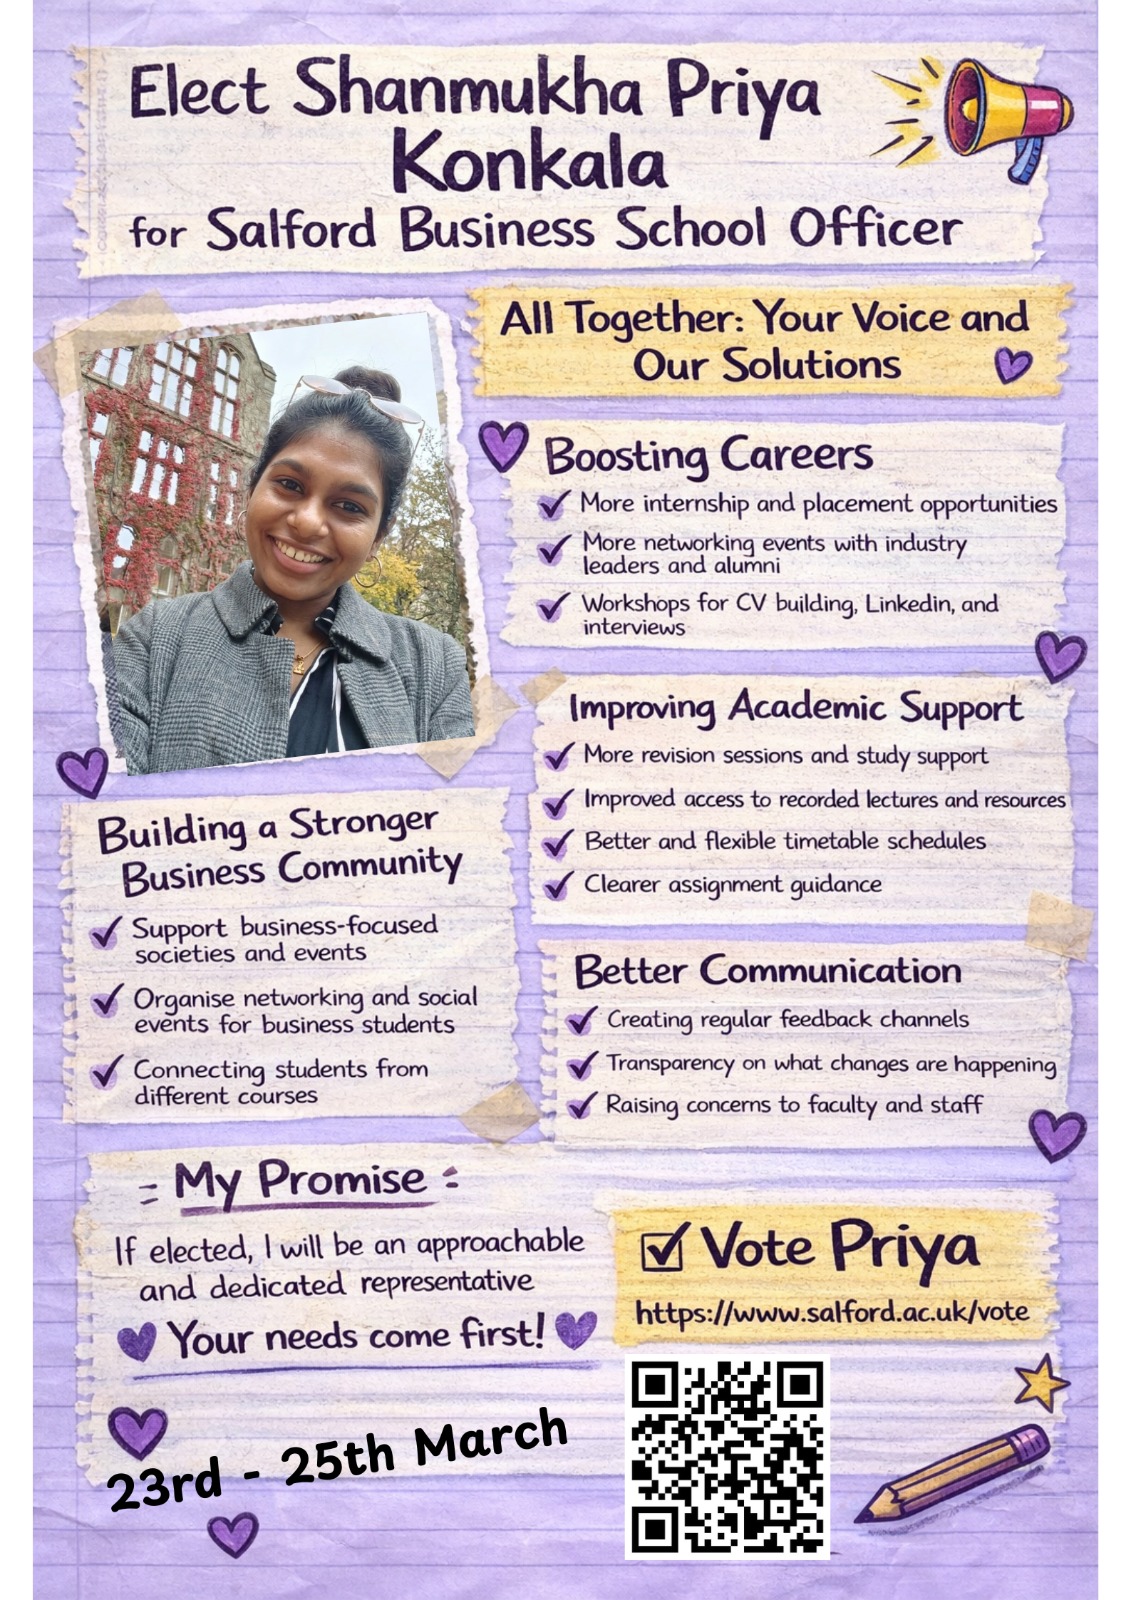 Elect Shanmukha Priya
Konkala
for Salford Business School Officer
All Together: Your Voice and
Our Solutions
Boosting Careers
More internship and placement opportunities
More networking events with industry
leaders and alumni
Workshops for CV building, Linkedin, and
interviews
Improving Academic Support
More revision sessions and study support
Improved access to recorded lectures and resources
Better and flexible timetable schedules
Clearer assignment guidance
Building a Stronger
Business Community
Support business-focused
societies and events
Organise networking and social
events for business students
Connecting students from
different courses
Better Communication
Creating regular feedback channels
Transparency on what changes are happening
Raising concerns to faculty and staff
My Promise
If elected, I will be an approachable
and dedicated representative
Your needs come first!
Vote Priya
https://www.salford.ac.uk/vote
23rd - 25th March